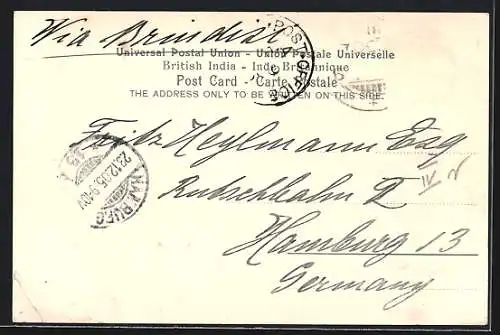 Via Brindisi
Universal Postal Union - Union Postale Universelle
British India - Inde Britannique
Post Card - Carte Postale
THE ADDRESS ONLY TO BE WRITTEN ON THIS SIDE.
POST OFFICE
Fritz Heylmann Esq
Rutschbahn II
IV
HAMBURG
23.12.05. 9-10V
Hamburg 13
Germany